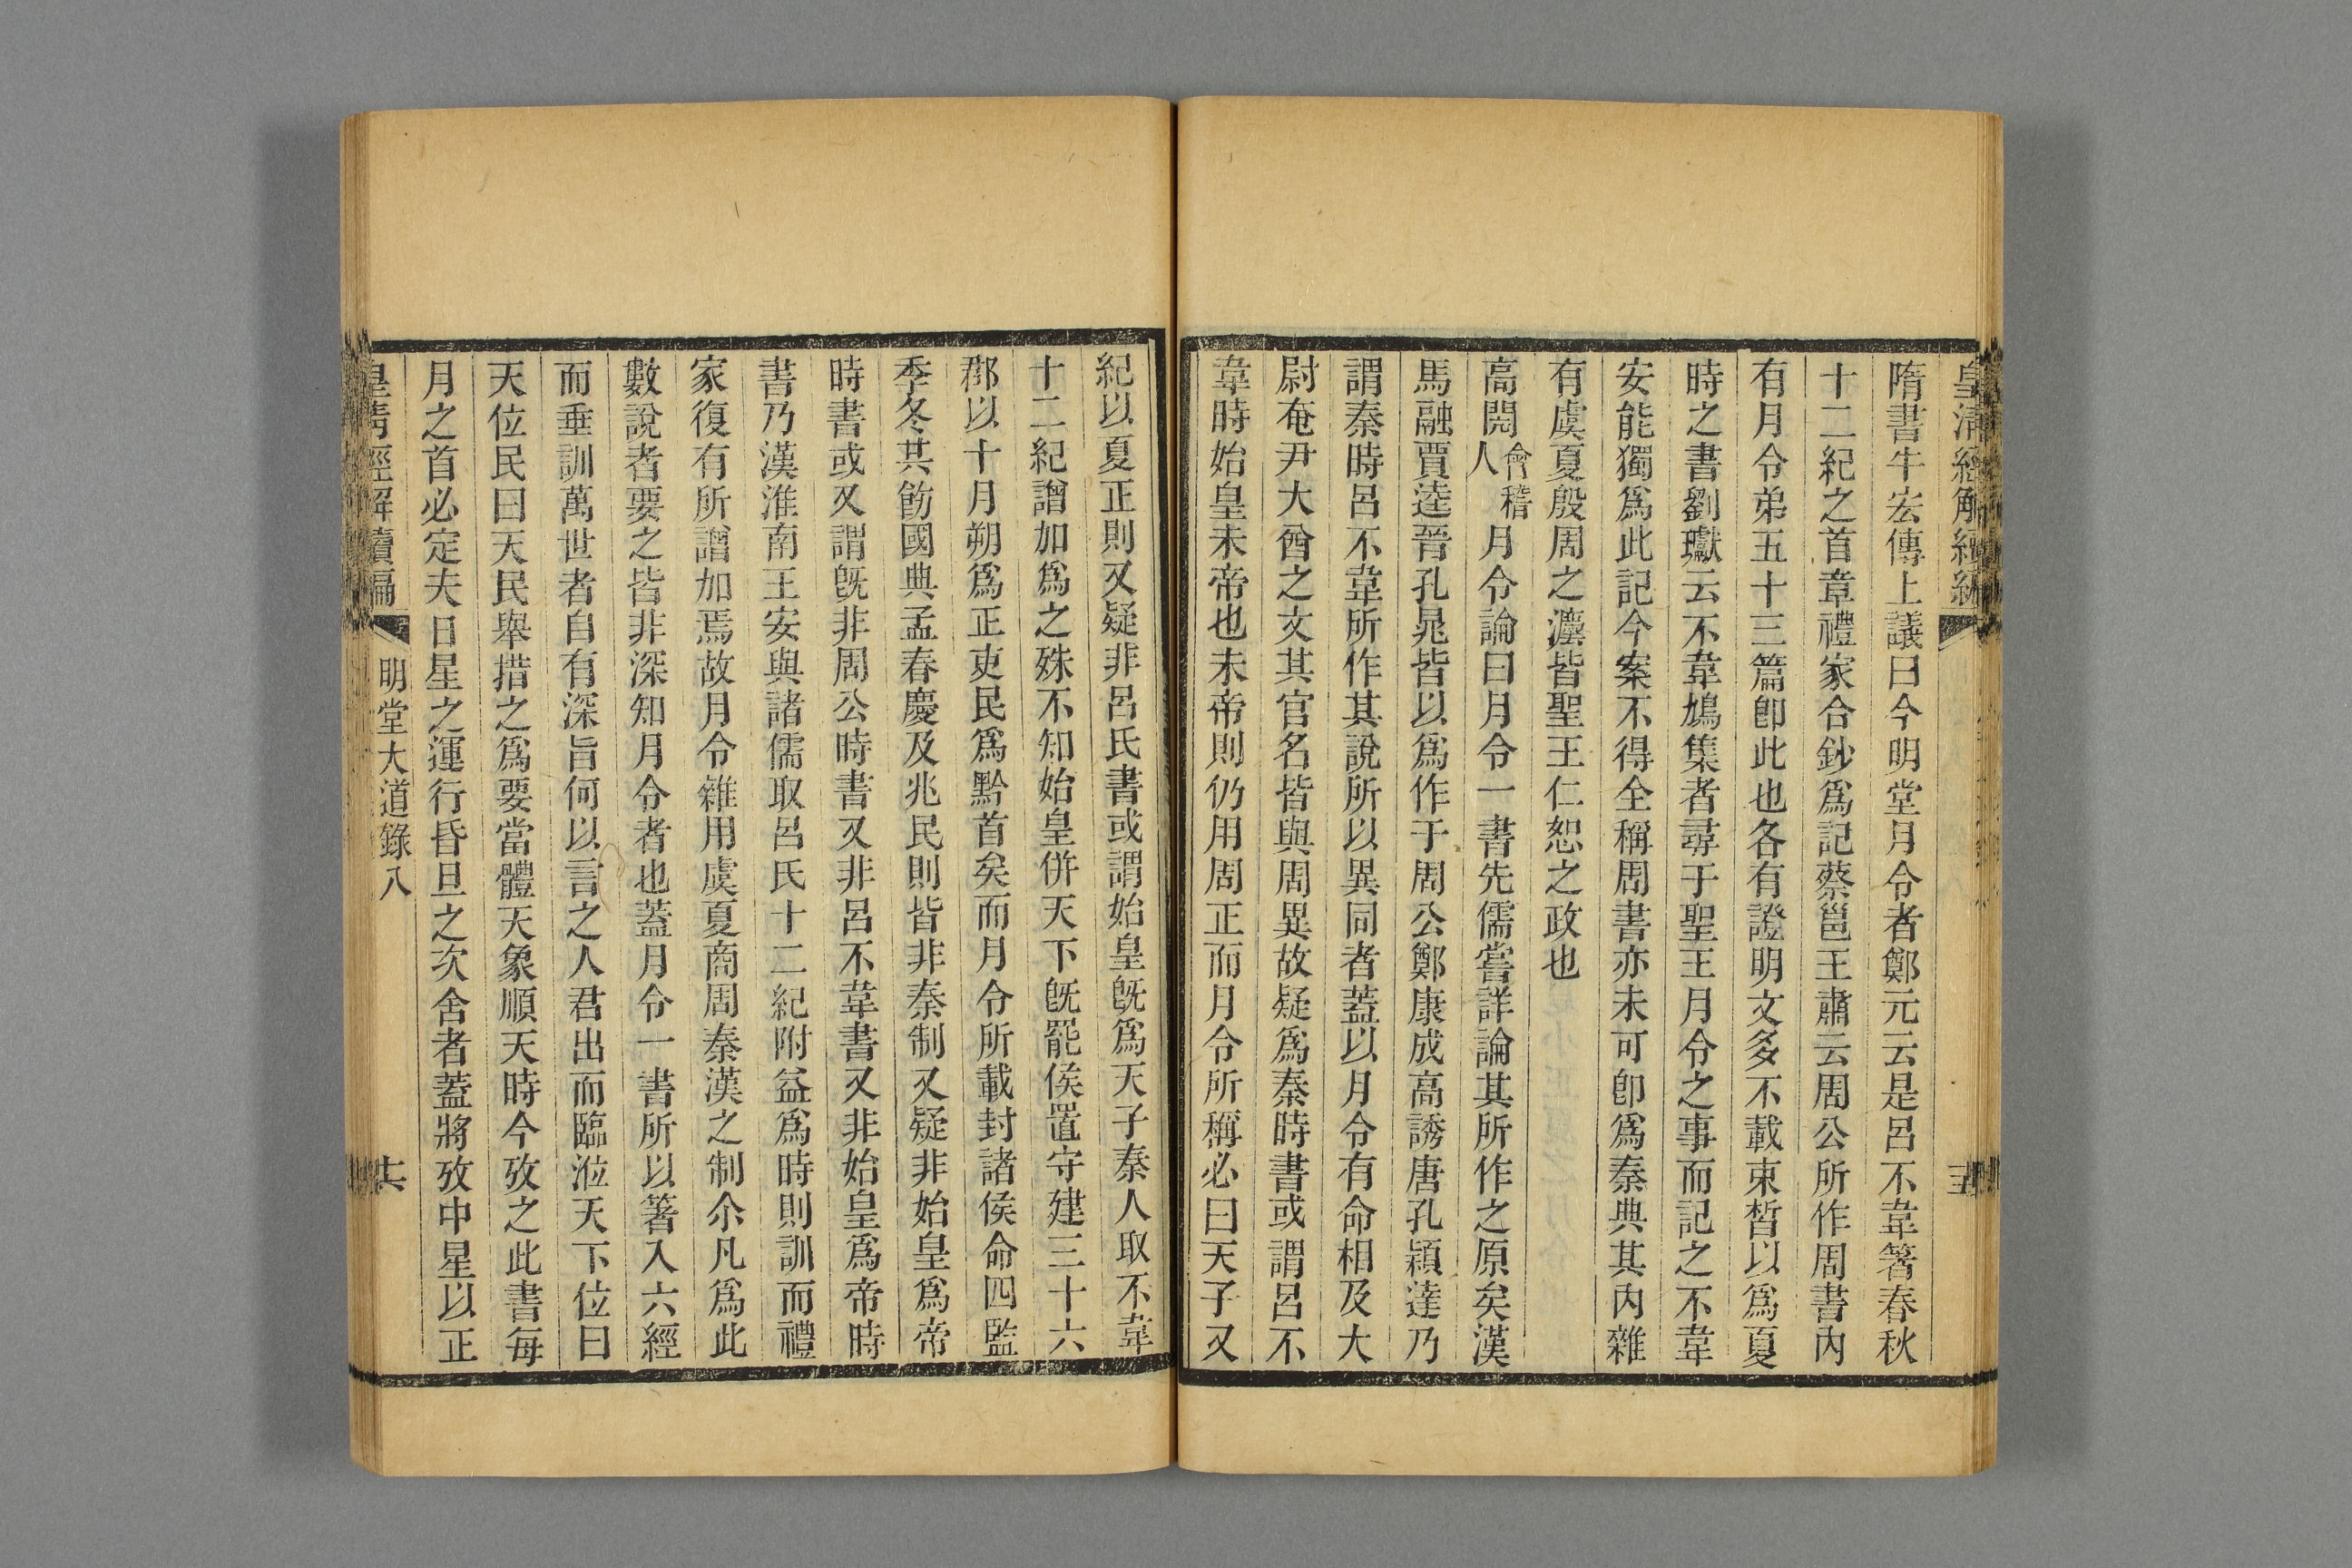 皇清經解續編
隋書牛宏傳上議曰今明堂月令者鄭元云是呂不韋箸春秋
十二紀之首章禮家合鈔爲記蔡邕王肅云周公所作周書內
有月令弟五十三篇卽此也各有證明文多不載束晳以爲夏
時之書劉瓛云不韋鳩集者尋于聖王月令之事而記之不韋
安能獨爲此記今案不得全稱周書亦未可卽爲秦典其內雜
有虞夏殷周之灋皆聖王仁恕之政也
高閌會稽人月令論曰月令一書先儒嘗詳論其所作之原矣漢
馬融賈逵晉孔晁皆以爲作于周公鄭康成高誘唐孔穎達乃
謂秦時呂不韋所作其說所以異同者蓋以月令有命相及大
尉奄尹大酋之文其官名皆與周異故疑爲秦時書或謂呂不
韋時始皇未帝也未帝則仍用周正而月令所稱必曰天子又
紀以夏正則又疑非呂氏書或謂始皇旣爲天子秦人取不韋
十二紀譄加爲之殊不知始皇併天下旣罷侯置守建三十六
郡以十月朔爲正吏民爲黔首矣而月令所載封諸侯命四監
季冬其飭國典孟春慶及兆民則皆非秦制又疑非始皇爲帝
時書或又謂旣非周公時書又非呂不韋書又非始皇爲帝時
書乃漢淮南王安與諸儒取呂氏十二紀附益爲時則訓而禮
家復有所譄加焉故月令雜用虞夏商周秦漢之制尒凡爲此
數說者要之皆非深知月令者也蓋月令一書所以箸入六經
而垂訓萬世者自有深旨何以言之人君出而臨涖天下位曰
天位民曰天民舉措之爲要當體天象順天時今攷之此書每
月之首必定夫日星之運行昏旦之次舍者蓋將攷中星以正
皇清經解續編
明堂大道錄八